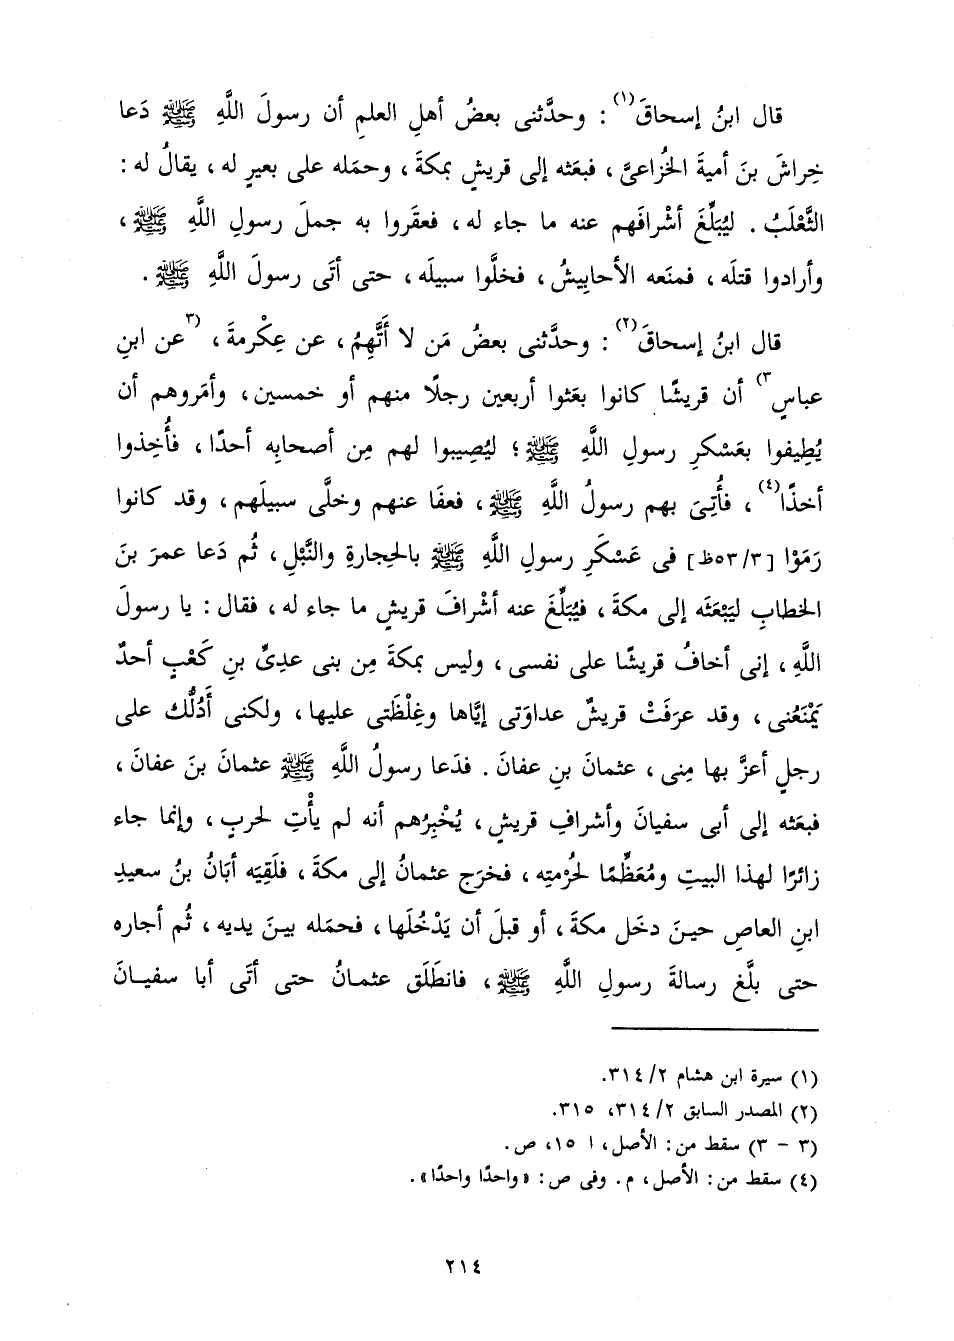 قال ابنُ إسحاقَ(١) : وحدَّثنى بعضُ أهلِ العلمِ أن رسولَ اللَّهِ ﷺ دَعا
خِراشَ بنَ أميةَ الخُزاعىَّ ، فبعَثه إلى قريشٍ بمكةَ ، وحمَله على بعيرٍ له ، يقالُ له :
الثَّعْلَبُ . ليُبَلِّغَ أشْرافَهم عنه ما جاء له ، فعقَروا به جملَ رسولِ اللَّهِ ﷺ ،
وأرادوا قتلَه ، فمنَعه الأحابِيشُ ، فخلَّوا سبيلَه ، حتى أتَى رسولَ اللَّهِ ﷺ .
قال ابنُ إسحاقَ(٢) : وحدَّثنى بعضُ مَن لا أَتَّهِمُ ، عن عِكْرمةَ ، (٣عن ابنِ
عباسٍ٣) أن قريشًا كانوا بعَثوا أربعين رجلًا منهم أو خمسين ، وأمَروهم أن
يُطِيفوا بعَسْكرِ رسولِ اللَّهِ ﷺ ؛ ليُصِيبوا لهم مِن أصحابِه أحدًا ، فأُخِذوا
أخذًا(٤) ، فأُتِىَ بهم رسولُ اللَّهِ ﷺ ، فعفَا عنهم وخلَّى سبيلَهم ، وقد كانوا
رَمَوْا [٥٣/٣ظ] فى عَسْكَرِ رسولِ اللَّهِ ﷺ بالحِجارةِ والنَّبْلِ ، ثُم دَعا عمرَ بنَ
الخطابِ ليَبْعَثَه إلى مكةَ ، فيُبَلِّغَ عنه أشْرافَ قريشٍ ما جاء له ، فقال : يا رسولَ
اللَّهِ ، إنى أخافُ قريشًا على نفسى ، وليس بمكةَ مِن بنى عدىِّ بنِ كَعْبٍ أحدٌ
يَمْنَعُنى ، وقد عرَفَتْ قريشٌ عداوَتى إيَّاها وغِلْظَتى عليها ، ولكنى أَدُلُّك على
رجلٍ أعزَّ بها مِنى ، عثمانَ بنِ عفانَ . فدَعا رسولُ اللَّهِ ﷺ عثمانَ بنَ عفانَ ،
فبعَثه إلى أبى سفيانَ وأشرافِ قريشٍ ، يُخْبِرُهم أنه لم يأْتِ لحربٍ ، وإنما جاء
زائرًا لهذا البيتِ ومُعَظِّمًا لحُرْمتِه ، فخرَج عثمانُ إلى مكةَ ، فلَقِيَه أبَانُ بنُ سعيدِ
ابنِ العاصِ حينَ دخَل مكةَ ، أو قبلَ أن يَدْخُلَها ، فحمَله بينَ يديه ، ثُم أجاره
حتى بلَّغ رسالةَ رسولِ اللَّهِ ﷺ ، فانطَلَق عثمانُ حتى أتَى أبا سفيانَ
(١) سيرة ابن هشام ٣١٤/٢.
(٢) المصدر السابق ٣١٤/٢، ٣١٥.
(٣ - ٣) سقط من : الأصل ، ا ١٥، ص.
(٤) سقط من : الأصل ، م . وفى ص : «واحدًا واحدًا».
٢١٤